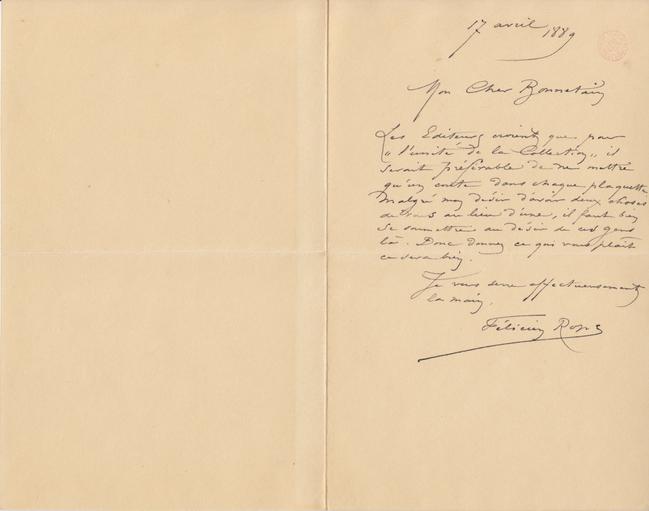 17 avril 1889
Mon Cher Bonnetain
Les Editeurs croient que pour
"l'unité de la Collection", il
serait préférable de ne mettre
qu'un conte dans chaque plaquette
Malgré mon désir d'avoir deux choses
de vous au lieu d'une, il faut bien
se soumettre au désir de ces gens
là. Donc donnez ce qui vous plaît
ce sera bien.
Je vous serre affectueusement
la main,
Félicien Rops